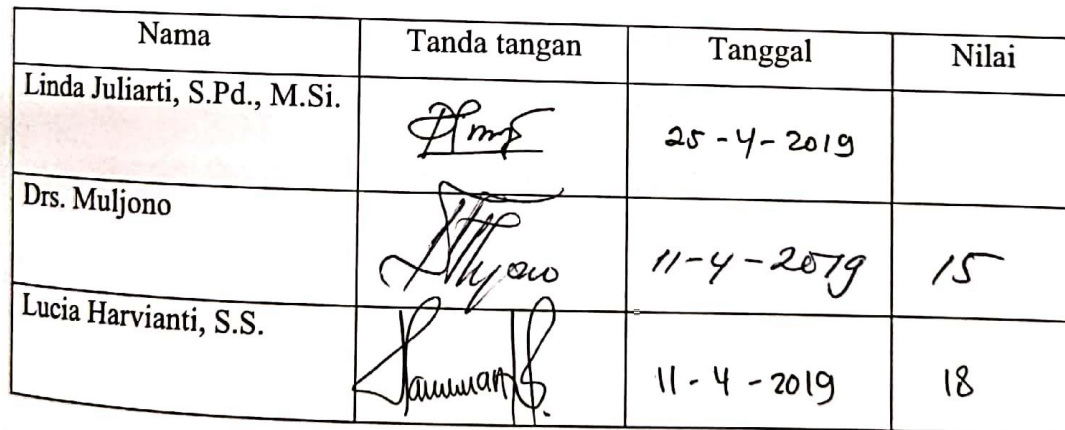 Nama Tanda tangan Tanggal Nilai
Linda Juliarti, S.Pd., M.Si. 25-4-2019
Drs. Muljono 11-4-2019 15
Lucia Harvianti, S.S. 11-4-2019 18